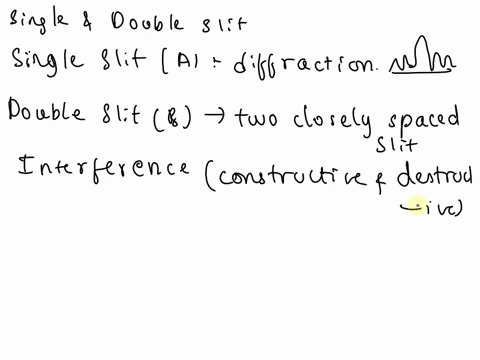 Single & Double slit
Single Slit (A) : diffraction.
Double Slit (B) → two closely spaced
slit
Interference (constructive & destruct
-ive)